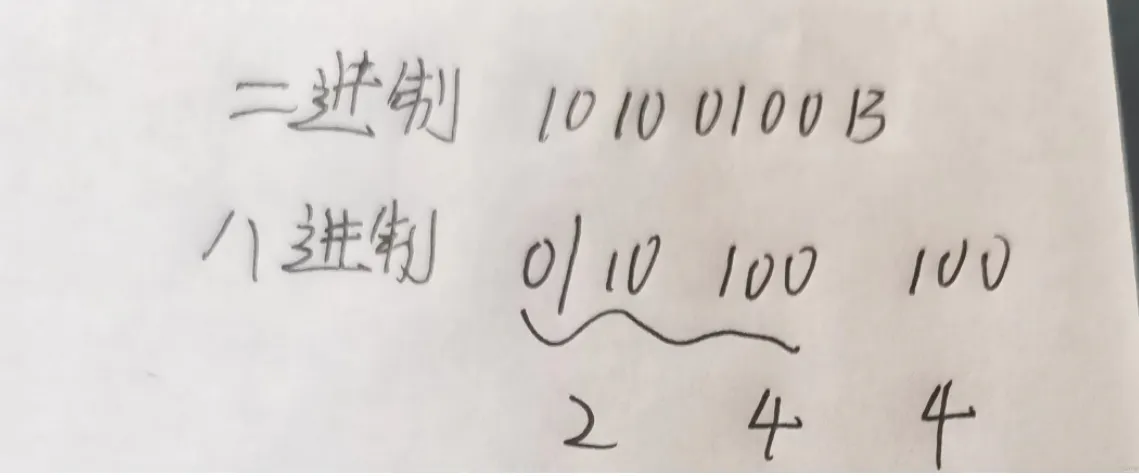 二进制 1010 0100 B
八进制 0|10 100 100
2 4 4